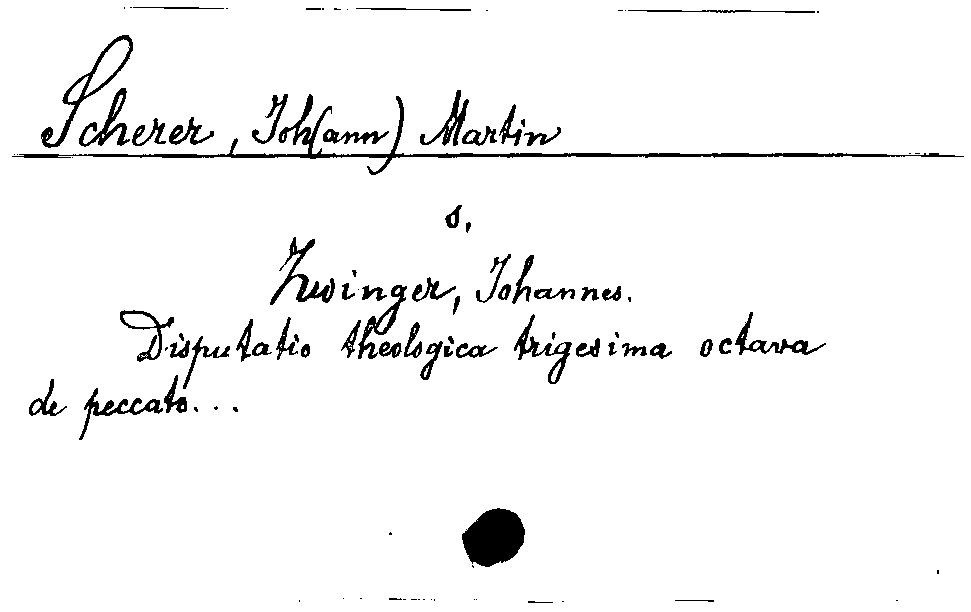 Scherer, Joh(ann) Martin
s.
Zwinger, Johannes.
Disputatio theologica trigesima octava
de peccato...